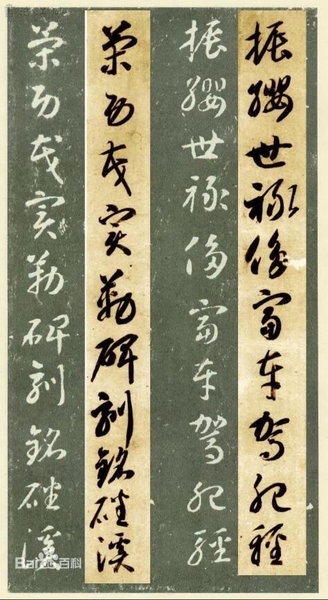 振纓世祿侈富車駕肥輕
振纓世祿侈富車駕肥輕
策功茂實勒碑刻銘磻溪
策功茂實勒碑刻銘磻溪
Baidu百科